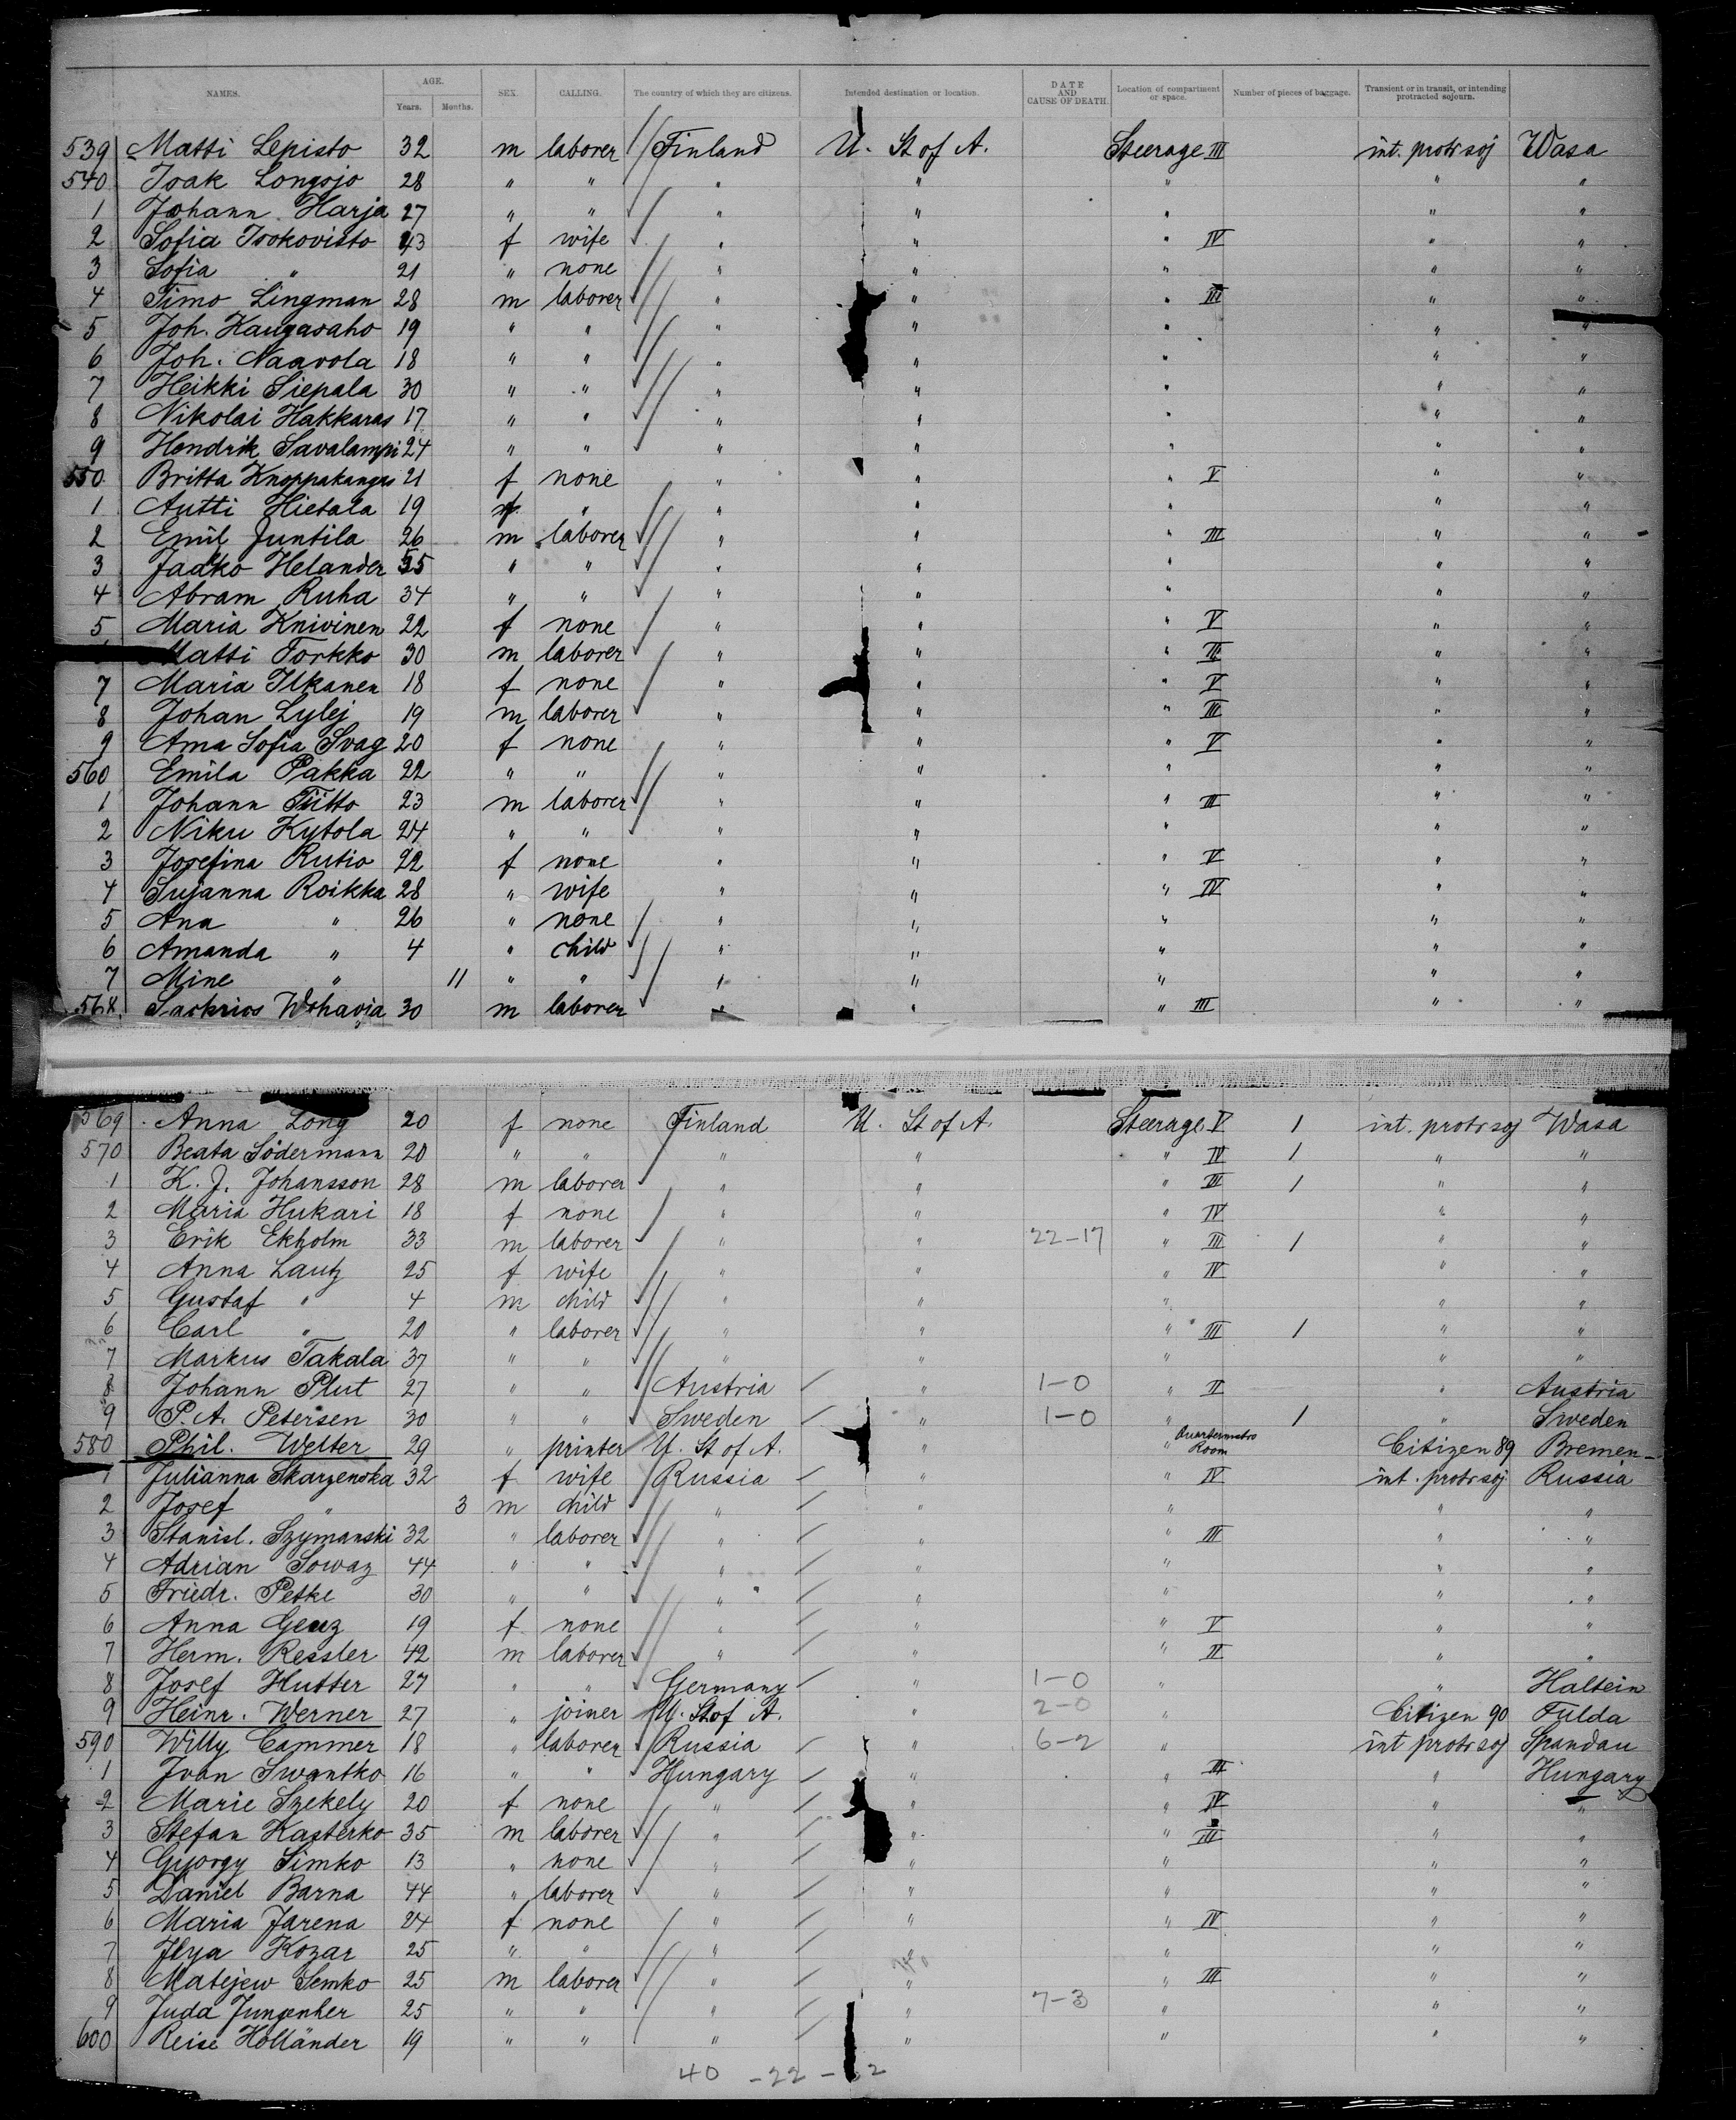 NAMES. AGE. Years. Months. SEX. CALLING. The country of which they are citizens. Intended destination or location. DATE AND CAUSE OF DEATH. Location of compartment or space. Number of pieces of baggage. Transient or in transit, or intending protracted sojourn.
539 Matti Lepisto 32 m laborer Finland U. St of A. Steerage III int. protr soj Wasa
540 Isak Longsjo 28 " " " " " " "
1 Johann Harja 27 " " " " " " "
2 Sofia Isokovisto 43 f wife " " " IV " "
3 Sofia " 21 " none " " " " "
4 Timo Lingman 28 m laborer " " " III " "
5 Joh. Kaugasaho 19 " " " " " " "
6 Joh. Naavola 18 " " " " " " "
7 Heikki Siepala 30 " " " " " " "
8 Nikolai Hakkaras 17 " " " " " " "
9 Hendrik Savalampi 24 " " " " " " "
550 Britta Knoppakangas 21 f none " " " V " "
1 Autti Hietala 19 " " " " " "
2 Emil Juntila 26 m laborer " " " III " "
3 Jadko Helander " " " " " " "
4 Abram Ruha 34 " " " " " " "
5 Maria Knivinen 22 f none " " " V " "
Matti Torkko 30 m laborer " " " III " "
7 Maria Ilkanen 18 f none " " " V " "
8 Johan Lylej 19 m laborer " " " III " "
9 Ama Sofia Svag 20 f none " " " V " "
560 Emila Pakka 22 " " " " " " "
1 Johann Tiitto 23 m laborer " " " III " "
2 Niku Kytola 24 " " " " " " "
3 Josefina Rutio 22 f none " " " V " "
4 Sujanna Roikka 28 " wife " " " IV " "
5 Ana " 26 " none " " " " "
6 Amanda " 4 " child " " " " "
7 Mine " 11 " " " " " " "
568. 30 m laborer " " " III " "
569 Anna Long 20 f none Finland U. St of A. Steerage V 1 int. protr soj Wasa
570 Beata Södermann 20 " " " " " IV 1 " "
1 K. J. Johansson 28 m laborer " " " III 1 " "
2 Maria Hukari 18 f none " " " IV " "
3 Erik Ekholm 33 m laborer " " 22-17 " III 1 " "
4 Anna Lautz 25 f wife " " " IV " "
5 Gustaf " 4 m child " " " " "
6 Carl " 20 " laborer " " " III 1 " "
7 Markus Takala 37 " " " " " " "
8 Johann Plut 27 " " Austria " 1-0 " II " Austria
9 P. A. Petersen 30 " " Sweden " 1-0 " 1 " Sweden
580 Phil. Welter 29 " printer U. St of A. " " Room Citizen 89 Bremen
1 Julianna Skarzenska 32 f wife Russia " " IV int. protr soj Russia
2 Josef " 3 m child " " " " "
3 Stanisl. Szymanski 32 " laborer " " " III " "
4 Adrian Sowaz 44 " " " " " " "
5 Friedr. Petke 30 " " " " " " "
6 Anna Genz 19 f none " " " V " "
7 Herm. Ressler 42 m laborer " " " II " "
8 Josef Hutter 27 " " Germany " 1-0 " " Haltein
9 Heinr. Werner 27 " joiner U. St of A. " 2-0 " Citizen 90 Fulda
590 Willy Cammer 18 " laborer Russia " 6-2 " int protr soj Spandau
1 Ivan Swantko 16 " " Hungary " " III " Hungary
2 Marie Szekely 20 f none " " " IV " "
3 Stefan Kasterko 35 m laborer " " " III " "
4 Gyorgy Simko 13 " none " " " " "
5 Daniel Barna 44 " laborer " " " " "
6 Maria Jarena 24 f none " " " IV " "
7 Ilya Kozar 25 " " " " " " "
8 Matejew Semko 25 m laborer " " " III " "
9 Juda Jungenher 25 " " " " 7-3 " " "
600 Reise Holländer 19 " " " " " " "
40 -22 -